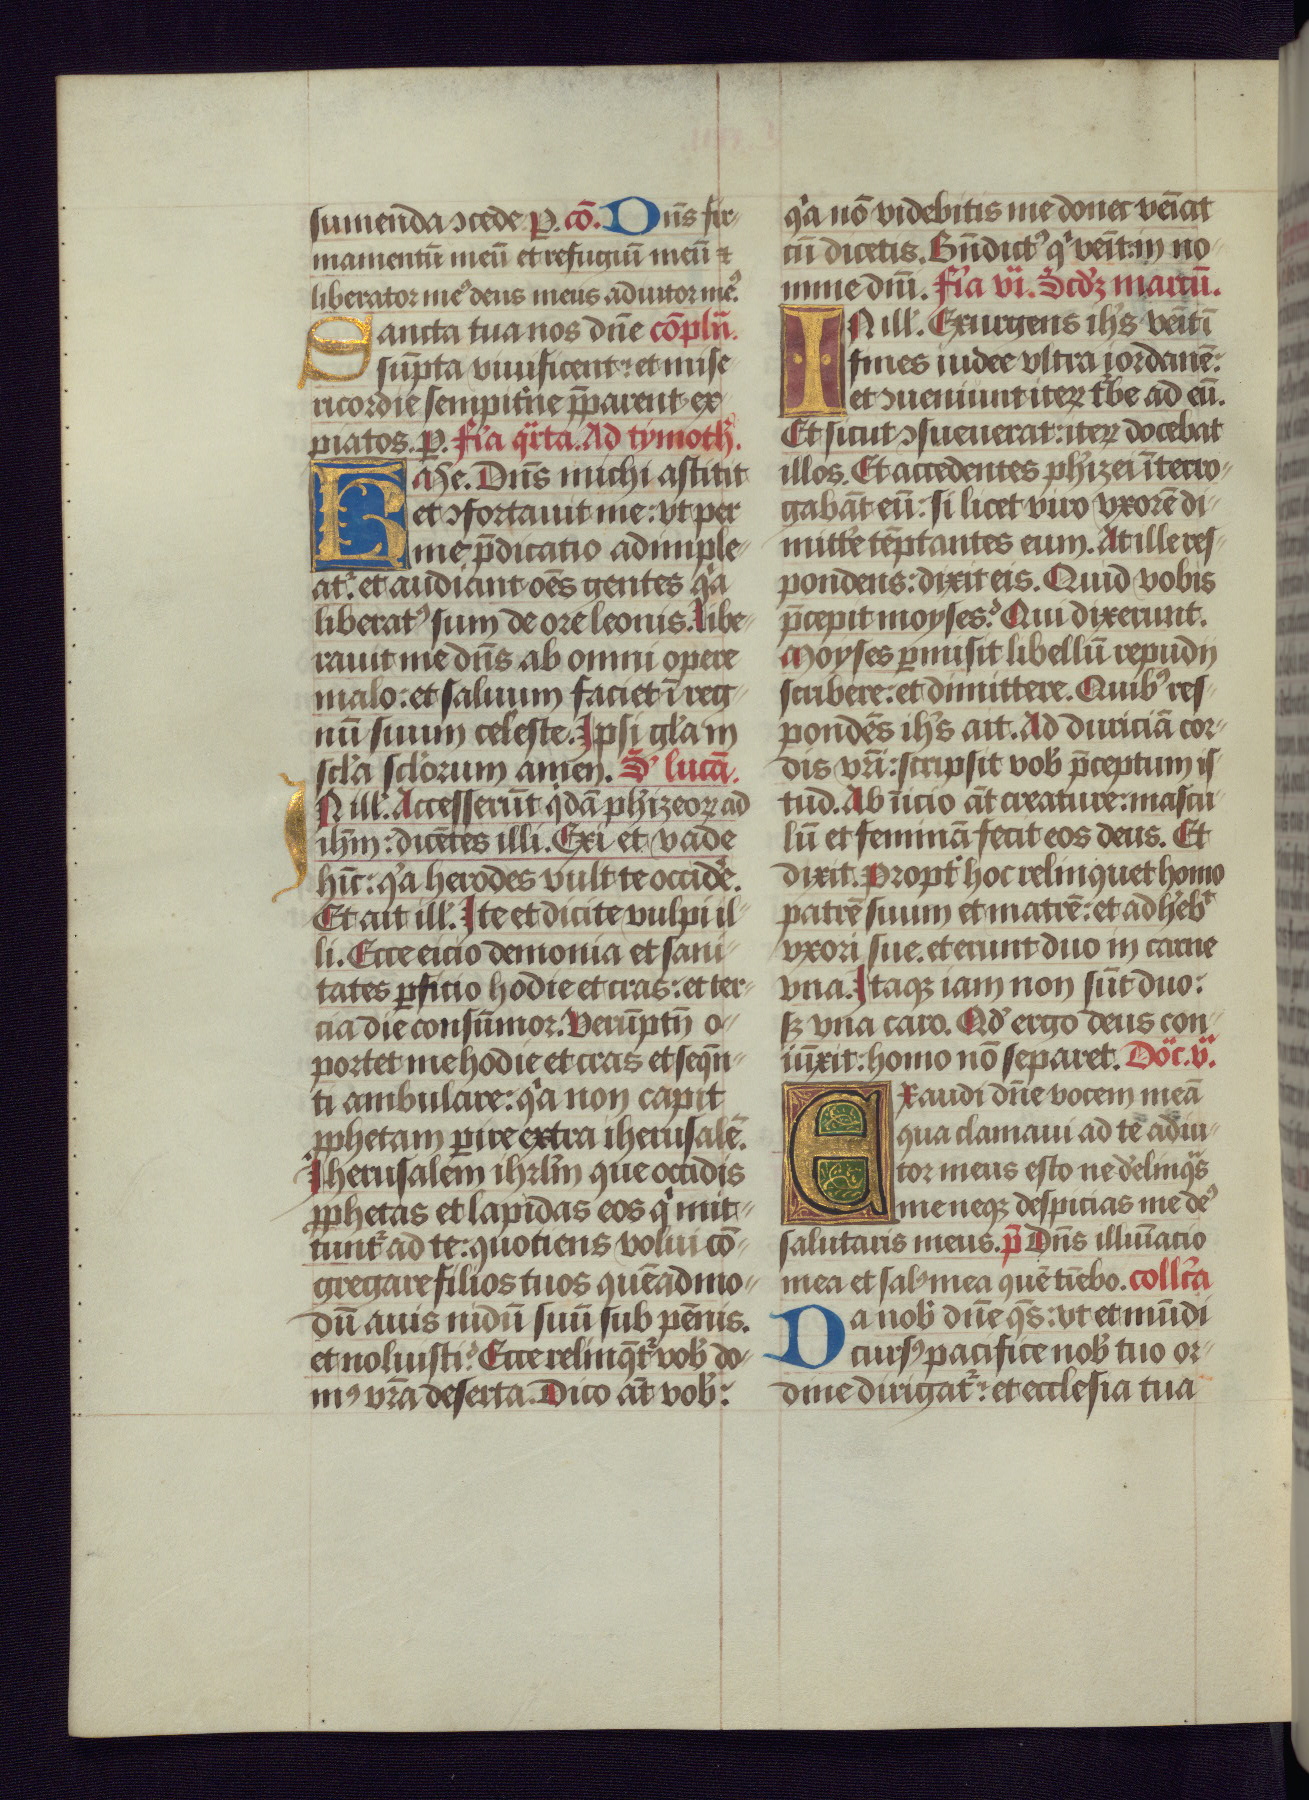 sumenda ↄcede P. cō. Dn̄s fir-
mamentū meū et refugiū meū ⁊
liberator me᷒ deus meus adiutor me᷒.
Sancta tua nos dn̄e cōpln̄.
sūpta viuificent: et mise-
ricordie sempit'ne p̄parent ex-
piatos. P. Fr'ia q͛rta. Ad tymoth'.
Kar̄e. Dn̄s michi astitit
et ↄfortauit me: vt per
me p̄dicatio adimple-
at᷑. et audiant oēs gentes q͛a
liberat᷒ sum de ore leonis. Libe-
rauit me dn̄s ab omni opere
malo: et saluum faciet ī reg-
nū suum celeste. Ipsi gl'a in
scl'a scl'orum amen. S' lucā.
IN ill'. Accesserūt q͛dā ph'izeoꝝ ad
ih̄m: dicētes illi. Exi et vade
hīc: q͛a herodes vult te occid'e.
Et ait ill'. Ite et dicite vulpi il-
li. Ecce eicio demonia et sani-
tates ꝑficio hodie et cras: et ter-
cia die consūmor. Verūptn̄ o-
portet me hodie et cras et seq̄n-
ti ambulare: q͛a non capit
ꝓphetam ꝑire extra iherusalē.
Iherusalem ihrl'm que occidis
ꝓphetas et lapidas eos q͛ mit-
tunt᷑ ad te: quotiens volui cō-
gregare filios tuos quēadmo-
dū auis nidū suū sub pēnis.
et noluisti.᷒ Ecce relinq̄t᷑ vob' do-
m᷒ vr̄a deserta. Dico āt vob':
q͛a nō videbitis me donec veīat
cū dicetis. Bn̄dict᷒ q͛ veīt in no-
mine dn̄i. Fr'ia vi. Scd'ꝫ marcū.
IN ill'. Exurgens ih's veīt ī
fines iudee vltra iordanē:
et ↄueniunt iteꝝ t'be ad eū.
Et sicut ↄsueuerat: iteꝝ docebat
illos. Et accedentes ph'izei īterro-
gabāt eū: si licet viro vxorē di-
mitt'e tēptantes eum. At ille res-
pondens: dixit eis. Quid vobis
p̄cepit moyses.᷒ Qui dixerunt.
Moyses ꝑmisit libellū repudij
scribere: et dimittere. Quib᷒ res-
pondēs ih's ait. Ad duriciā cor-
dis vr̄i: scripsit vob' p̄ceptum is-
tud. Ab īicio āt creature: mascu-
lū et feminā fecit eos deus. Et
dixit. Propt' hoc relinquet homo
patrē suum et matrē: et adh'ebt
vxori sue. et erunt duo in carne
vna. Itaqꝫ iam non sūt duo:
sꝫ vna caro. Qd' ergo deus con-
iūxit: homo nō separet. Dōc. v͛.
Exaudi dn̄e vocem meā
qua clamaui ad te adiu-
tor meus esto ne d'elinq͛s
me neqꝫ despicias me de᷒
salutaris meus. p̄ Dn̄s illuīatio
mea et sal᷒ mea quē tīebo. coll'ca
Da nob' dn̄e q̄s: vt et mūdi
curs᷒ pacifice nob' tuo or-
dine dirigat᷑: et ecclesia tua